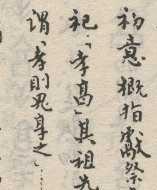 初意概指獻祭
祀.「孝鬲」其祖先
謂「孝則鬼享之」……